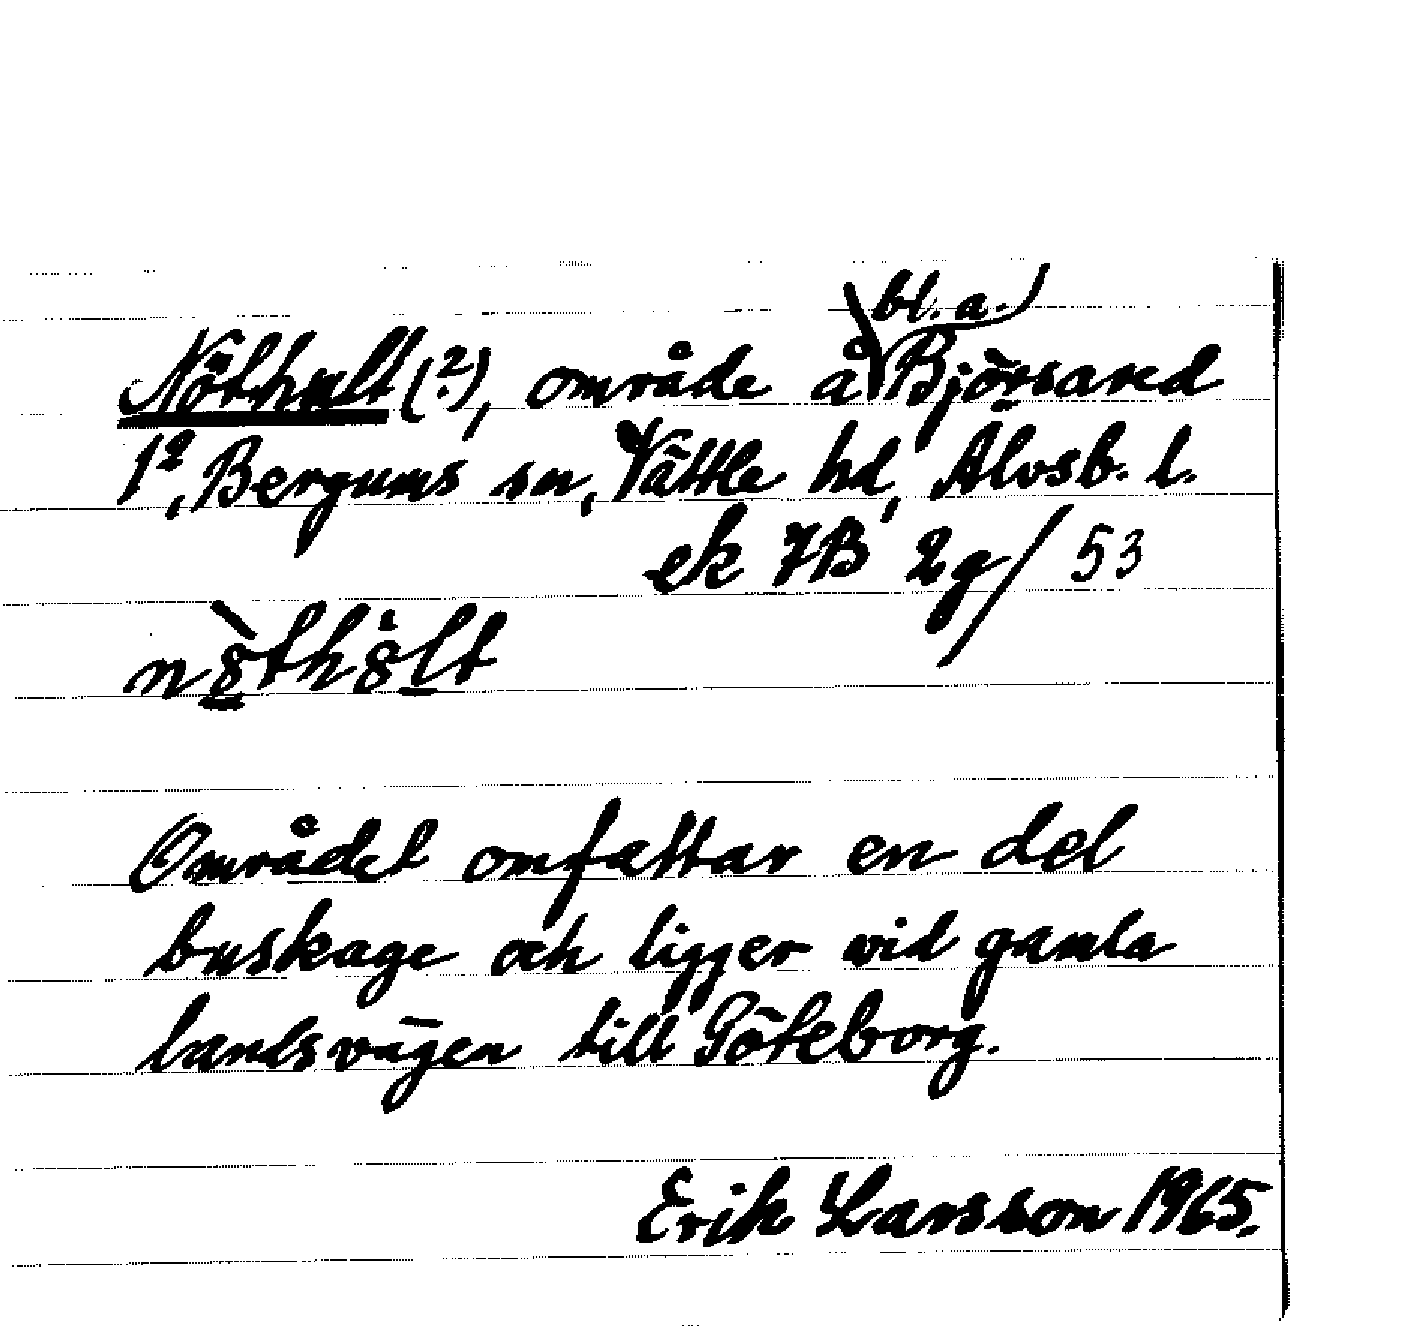 bl. a.
Nöthult (?), område å Björsared
1², Bergums sn, Vättle hd, Älvsb. l.
ek 7B 2g/53
Området omfattar en del
buskage och ligger vid gamla
landsvägen till Göteborg.
Erik Larsson 1965.